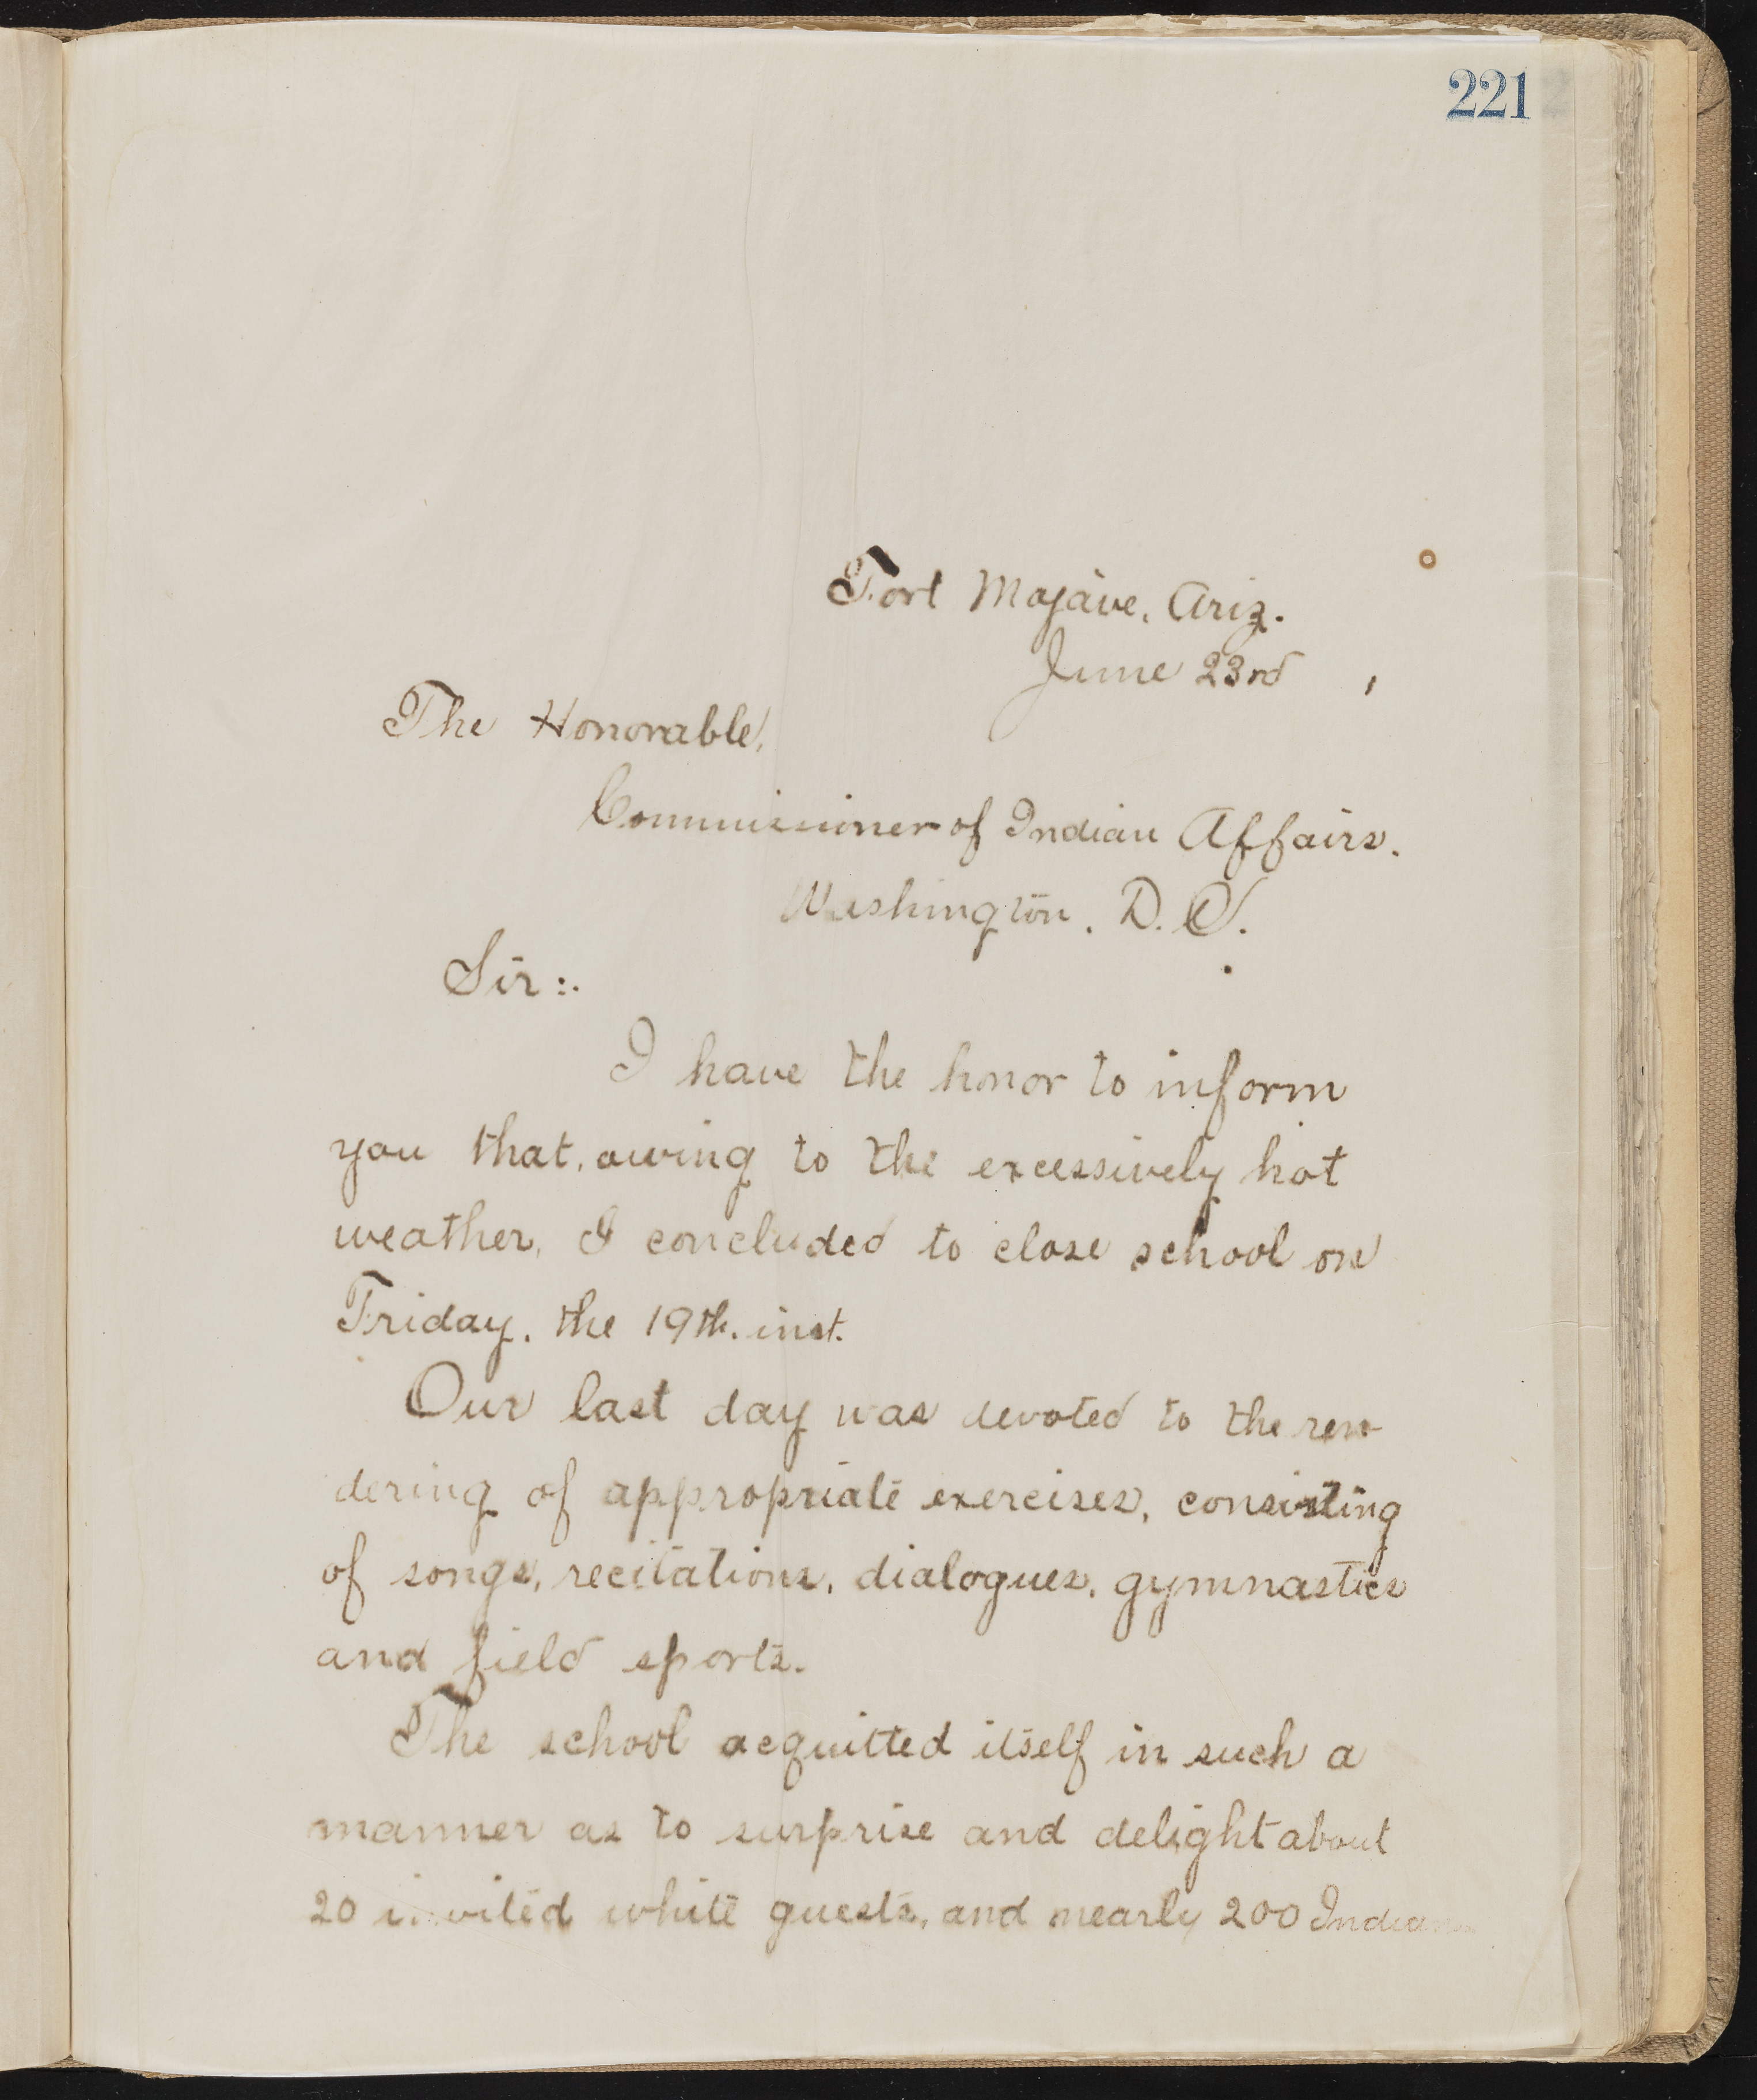 221
Fort Mojave, Ariz.
June 23rd ,
The Honorable,
Commissioner of Indian Affairs.
Washington, D. C.
Sir:.
I have the honor to inform
you that, owing to the excessively hot
weather, I concluded to close school on
Friday, the 19th. inst.
Our last day was devoted to the ren-
dering of appropriate exercises, consisting
of songs, recitations, dialogues, gymnastics
and field sports.
The school acquitted itself in such a
manner as to surprise and delight about
20 invited white guests, and nearly 200 Indians